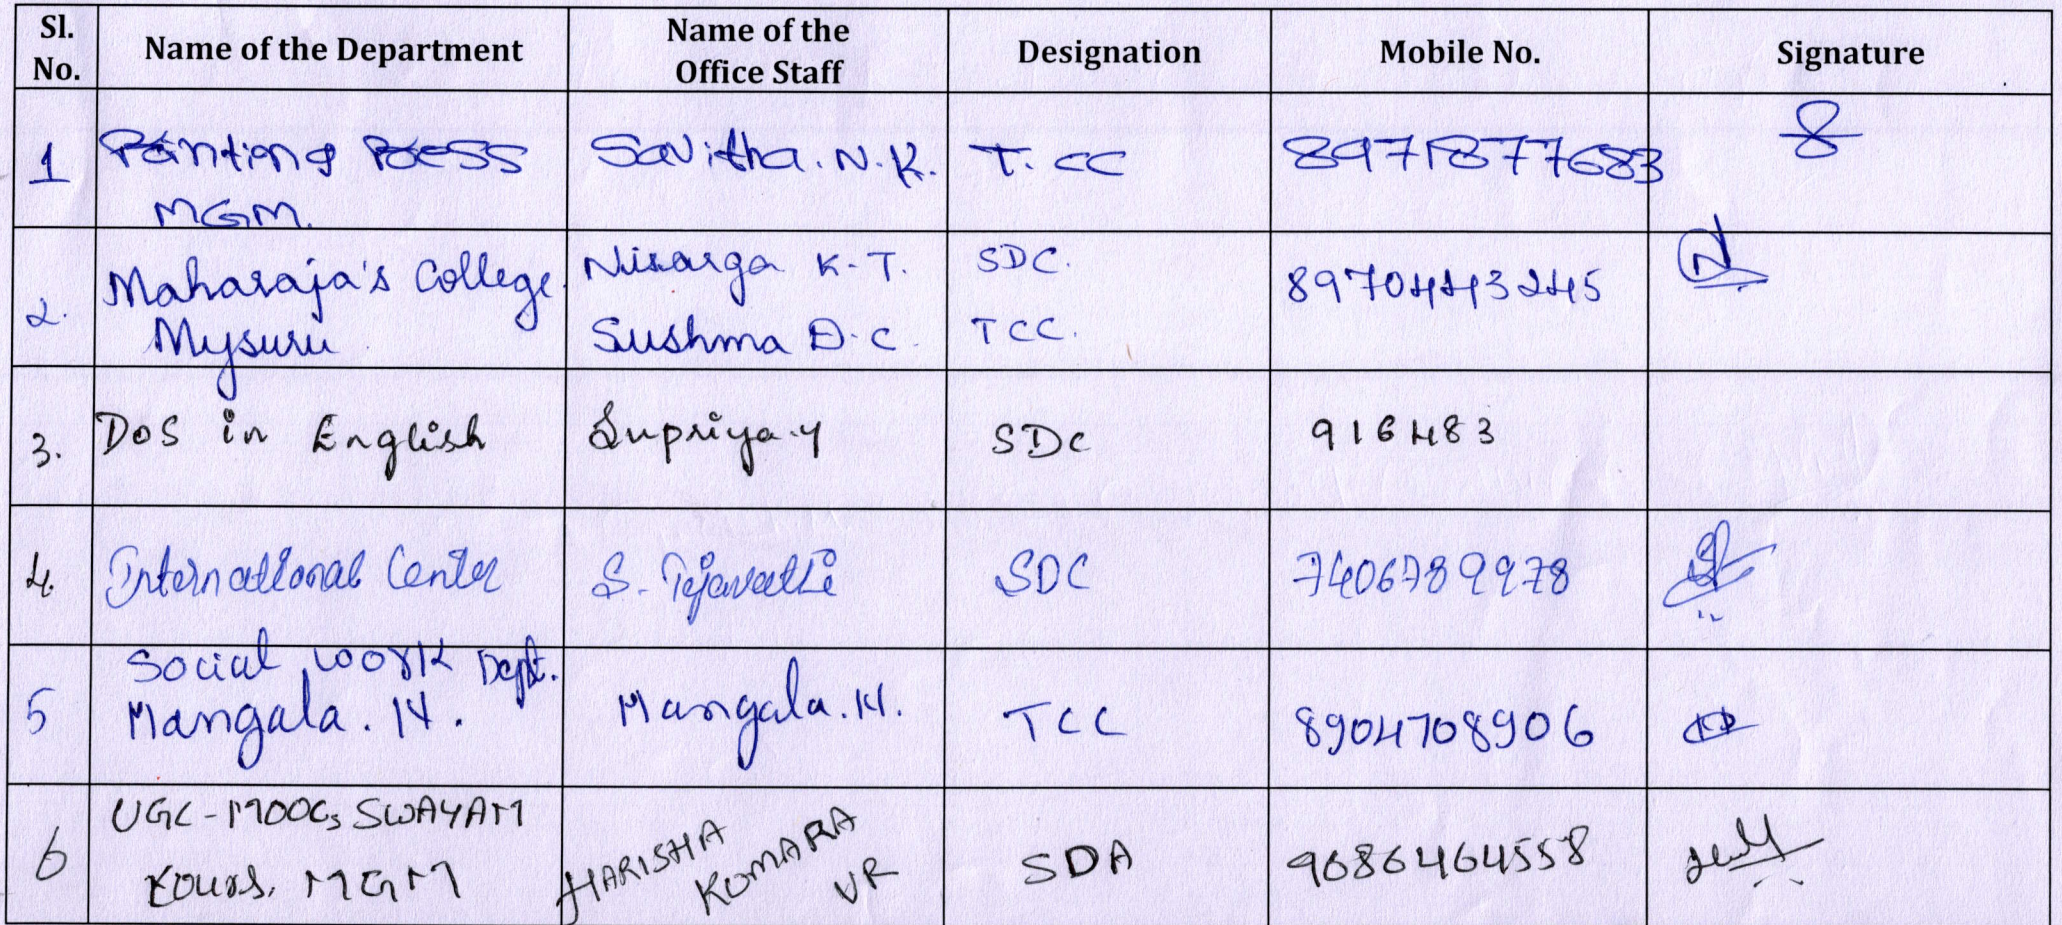 Sl. No. Name of the Department Name of the Office Staff Designation Mobile No. Signature
1 Printing Press Savitha. N. K. T. CC 8971877683
MGM.
2. Maharaja's College Nisarga K.T. SDC. 8970443245
Mysuru Sushma D.C. TCC.
3. DoS in English Supriya.y SDC 916483
4. International Center S. Tejavathi SDC 7406789978
Social work Dept.
5 Mangala. N. Mangala. N. TCC 8904708906
UGC-MOOCs SWAYAM HARISHA
6 KUMARA SDA 9686464558
MGM VR